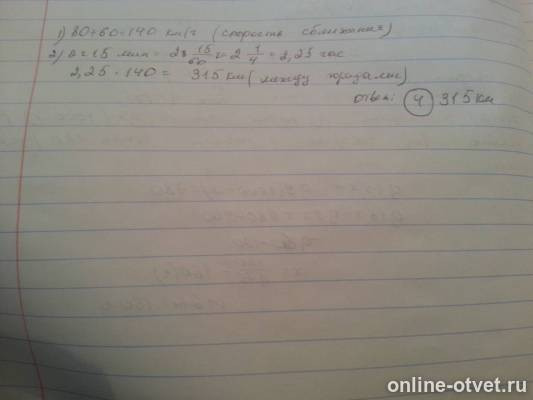 1) 80+60=140 км/ч (скорость сближения)
2) 2ч 15 мин = 2ч 15/60 = 2 1/4 = 2,25 час
2,25 · 140 = 315 км (между городами)
ответ: 4 315 км
online-otvet.ru